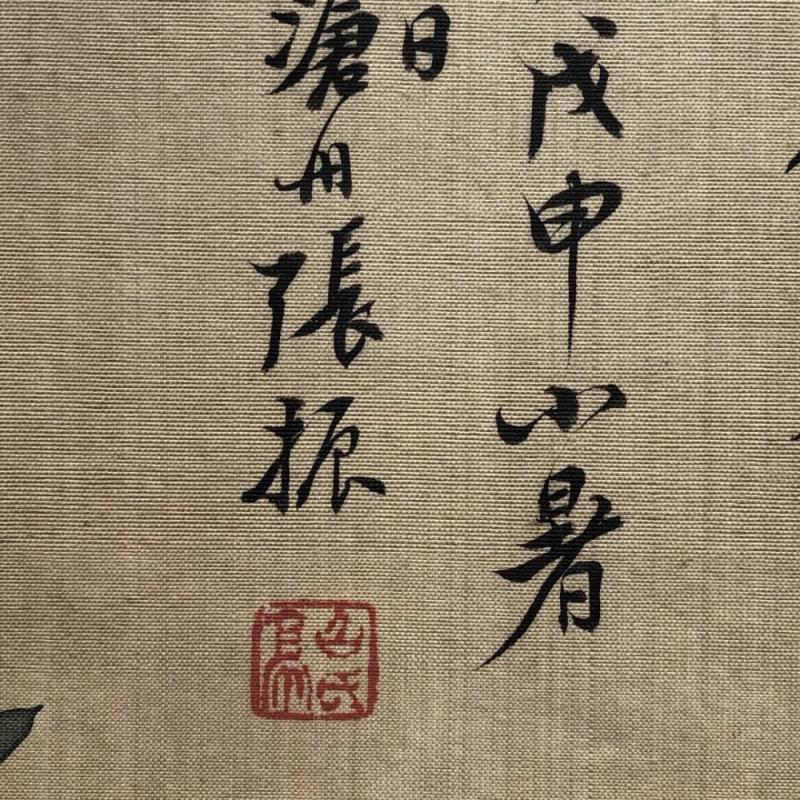 戊申小暑
日
滄舟張振